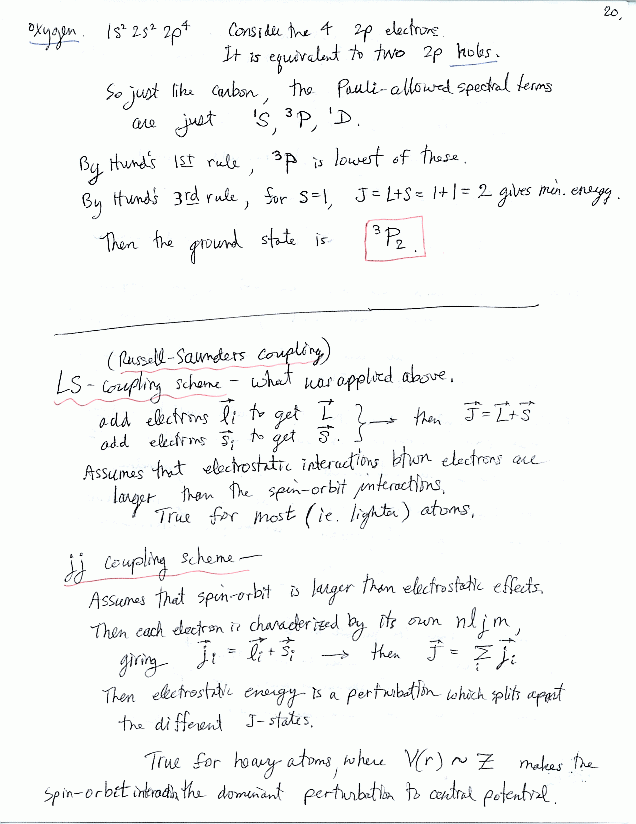 20.
Oxygen. 1s² 2s² 2p⁴ Consider the 4 2p electrons.
It is equivalent to two 2p holes.
So just like carbon, the Pauli-allowed spectral terms
are just ¹S, ³P, ¹D.
By Hund's 1st rule, ³P is lowest of these.
By Hund's 3rd rule, for S=1, J = L+S = 1+1 = 2 gives min. energy.
Then the ground state is ³P₂.
(Russell-Saunders coupling)
LS-coupling scheme – what was applied above.
add electrons l⃗ᵢ to get L⃗ } → then J⃗ = L⃗+S⃗
add electrons s⃗ᵢ to get S⃗.
Assumes that electrostatic interactions btwn electrons are
larger than the spin-orbit interactions.
True for most (ie. lighter) atoms.
jj coupling scheme —
Assumes that spin-orbit is larger than electrostatic effects.
Then each electron is characterized by its own nljm,
giving j⃗ᵢ = l⃗ᵢ + s⃗ᵢ → then J⃗ = Σᵢ j⃗ᵢ
Then electrostatic energy is a perturbation which splits apart
the different J-states.
True for heavy atoms, where V(r) ~ Z makes the
spin-orbit interaction the dominant perturbation to central potential.